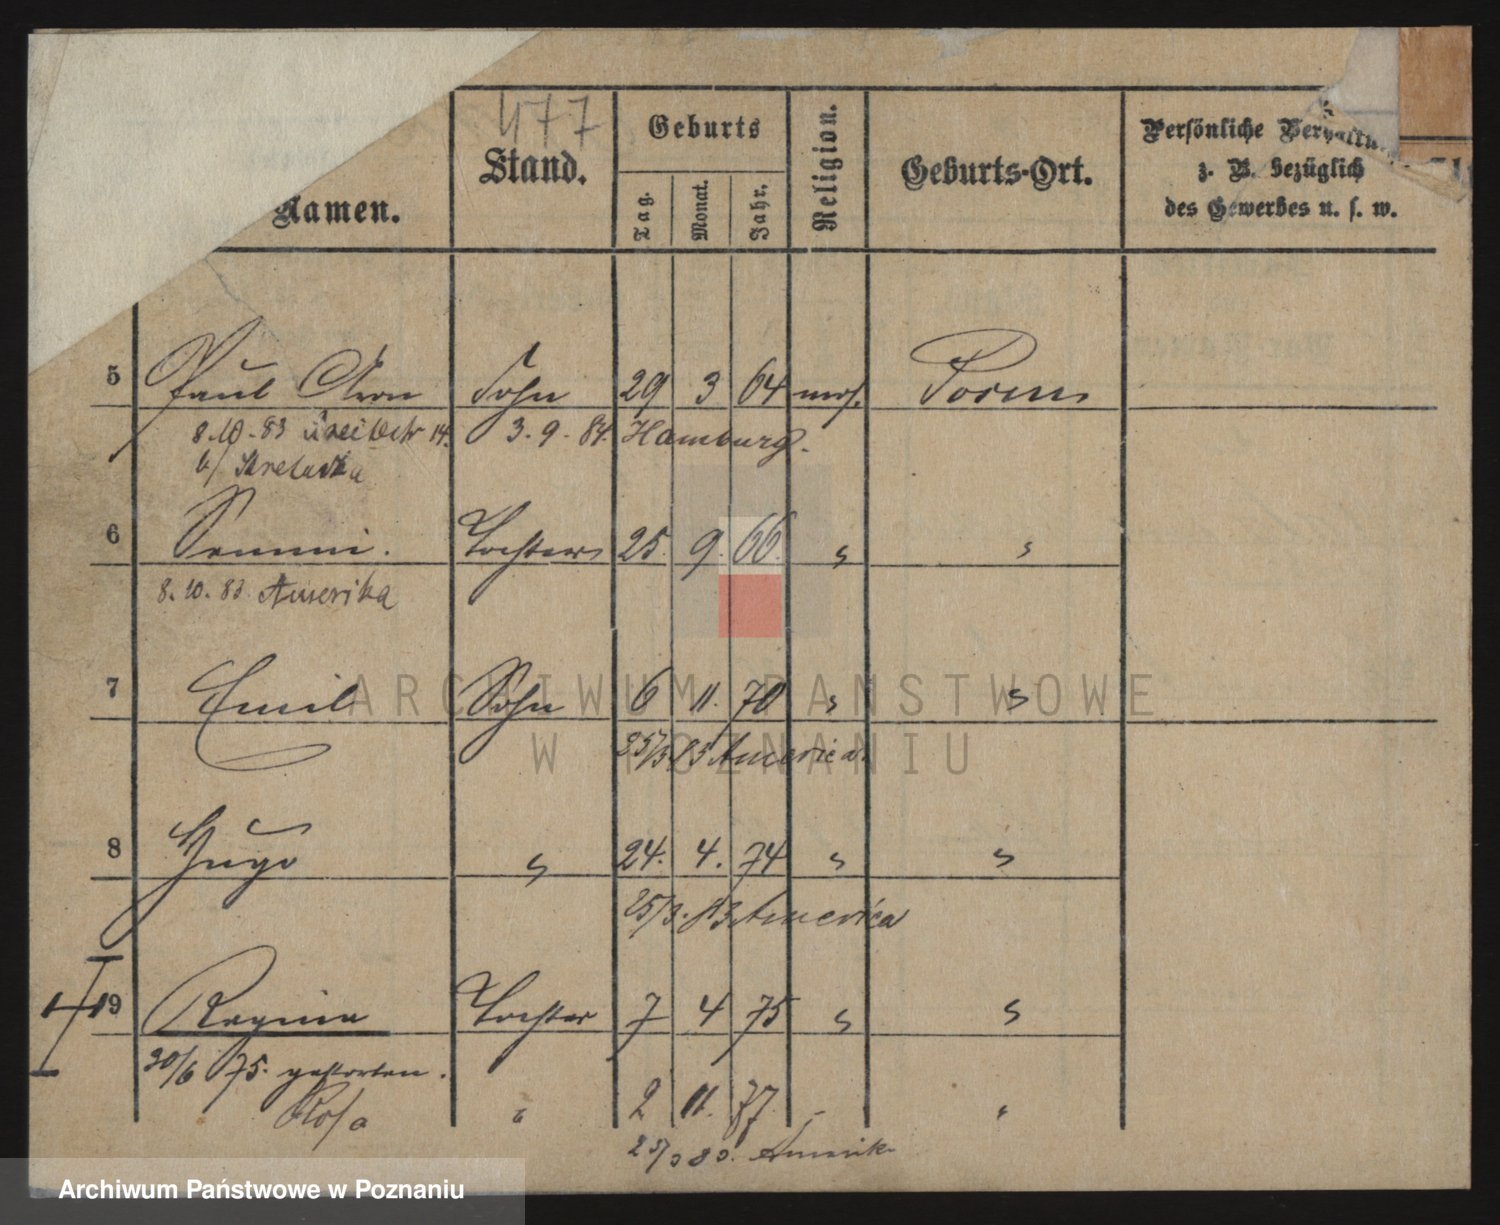 477
Namen. Stand. Geburts Religion. Geburts-Ort. Persönliche
z. B. bezüglich
des Gewerbes u. s. w.
Tag. Monat. Jahr.
5 Paul Aron Sohn 29 3 64 mos. Posen
8.10.83 14. 3.9.84. Hamburg.
6 Tochter 25. 9. 66. " "
8.10.83 Amerika
7 Emil Sohn 6 11. 70 " "
25/3.83 America
8 Hugo " 24. 4. 74 " "
25/3.83 America
9 Regina Tochter 7 4 75 " "
30/6 75. gestorben.
Rosa " 2 11. 77. - "
25/3 83. Amerika
ARCHIWUM PAŃSTWOWE
W POZNANIU
Archiwum Państwowe w Poznaniu